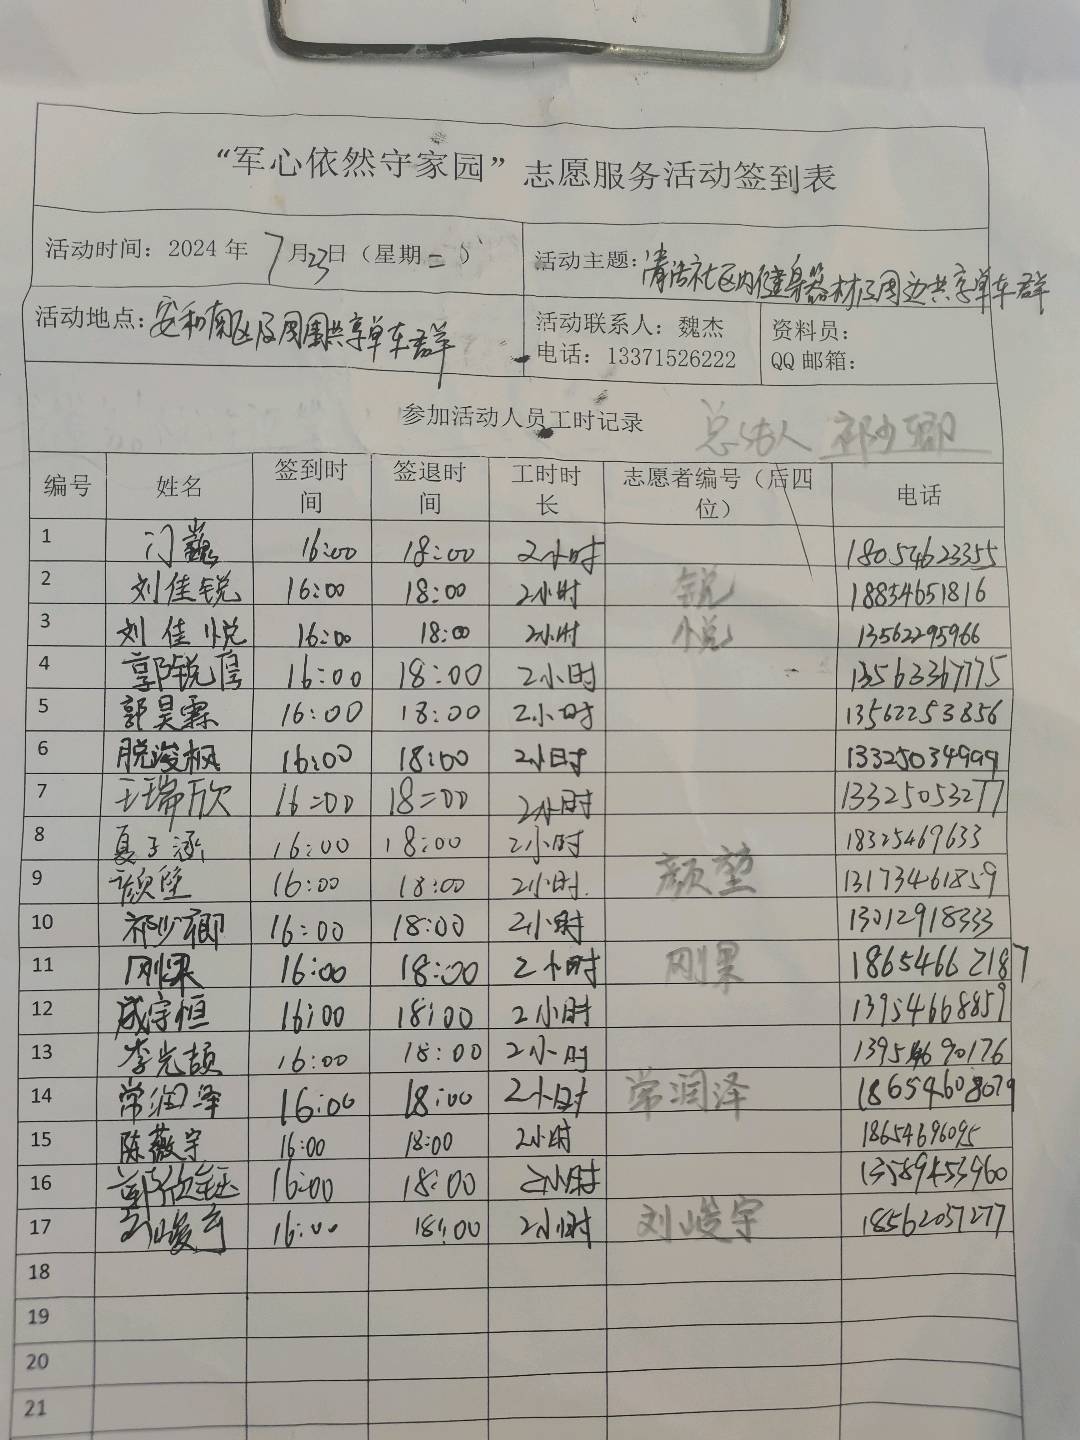 “军心依然守家园”志愿服务活动签到表
活动时间：2024年7月23日（星期二）
活动主题：清洁社区内健身器材及周边共享单车群
活动地点：安和南区及周围共享单车群
活动联系人：魏杰
电话：13371526222
资料员：
QQ邮箱：
参加活动人员工时记录
总负责人 祁少卿
编号 姓名 签到时间 签退时间 工时时长 志愿者编号（后四位） 电话
1 门巍 16:00 18:00 2小时 18054623355
2 刘佳锐 16:00 18:00 2小时 锐 18854651816
3 刘佳悦 16:00 18:00 2小时 悦 13562295966
4 郭锐 16:00 18:00 2小时 13563367775
5 郭昊霖 16:00 18:00 2小时 13562253856
6 脱浚枫 16:00 18:00 2小时 13325034999
7 王瑞欣 16:00 18:00 2小时 13325053277
8 夏子涵 16:00 18:00 2小时 18325469633
9 颜堃 16:00 18:00 2小时 颜堃 13173461859
10 祁少卿 16:00 18:00 2小时 13012918333
11 刚果 16:00 18:00 2小时 刚果 18654662187
12 成宇恒 16:00 18:00 2小时 13954668859
13 李光颉 16:00 18:00 2小时 13954690176
14 常润泽 16:00 18:00 2小时 常润泽 18654608079
15 陈薇宇 16:00 18:00 2小时 18654696095
16 郭欣钰 16:00 18:00 2小时 13589453960
17 刘峻宇 16:00 18:00 2小时 刘峻宇 18562057277
18
19
20
21